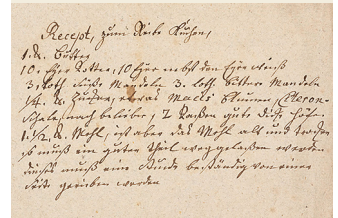 Recept, zum Reibe Kuchen,
1. ℔. Butter
10. Eyer Dotter, 10 Eyer nebst den Eyer Weiß
3. Loth Süße Mandeln 3. Loth bittere Mandeln
1/4. ℔. Zucker, etwas Macis Blumen, Citron-
Schale, nach belieben, 2 Taßen gute dicke Hefe.
1. 1/2 ℔. Mehl, ist aber das Mehl alt und trocken
so muß ein guter theil weg gelaßen werden
dießes muß eine Stunde beständig von einer
Seite gerieben werden